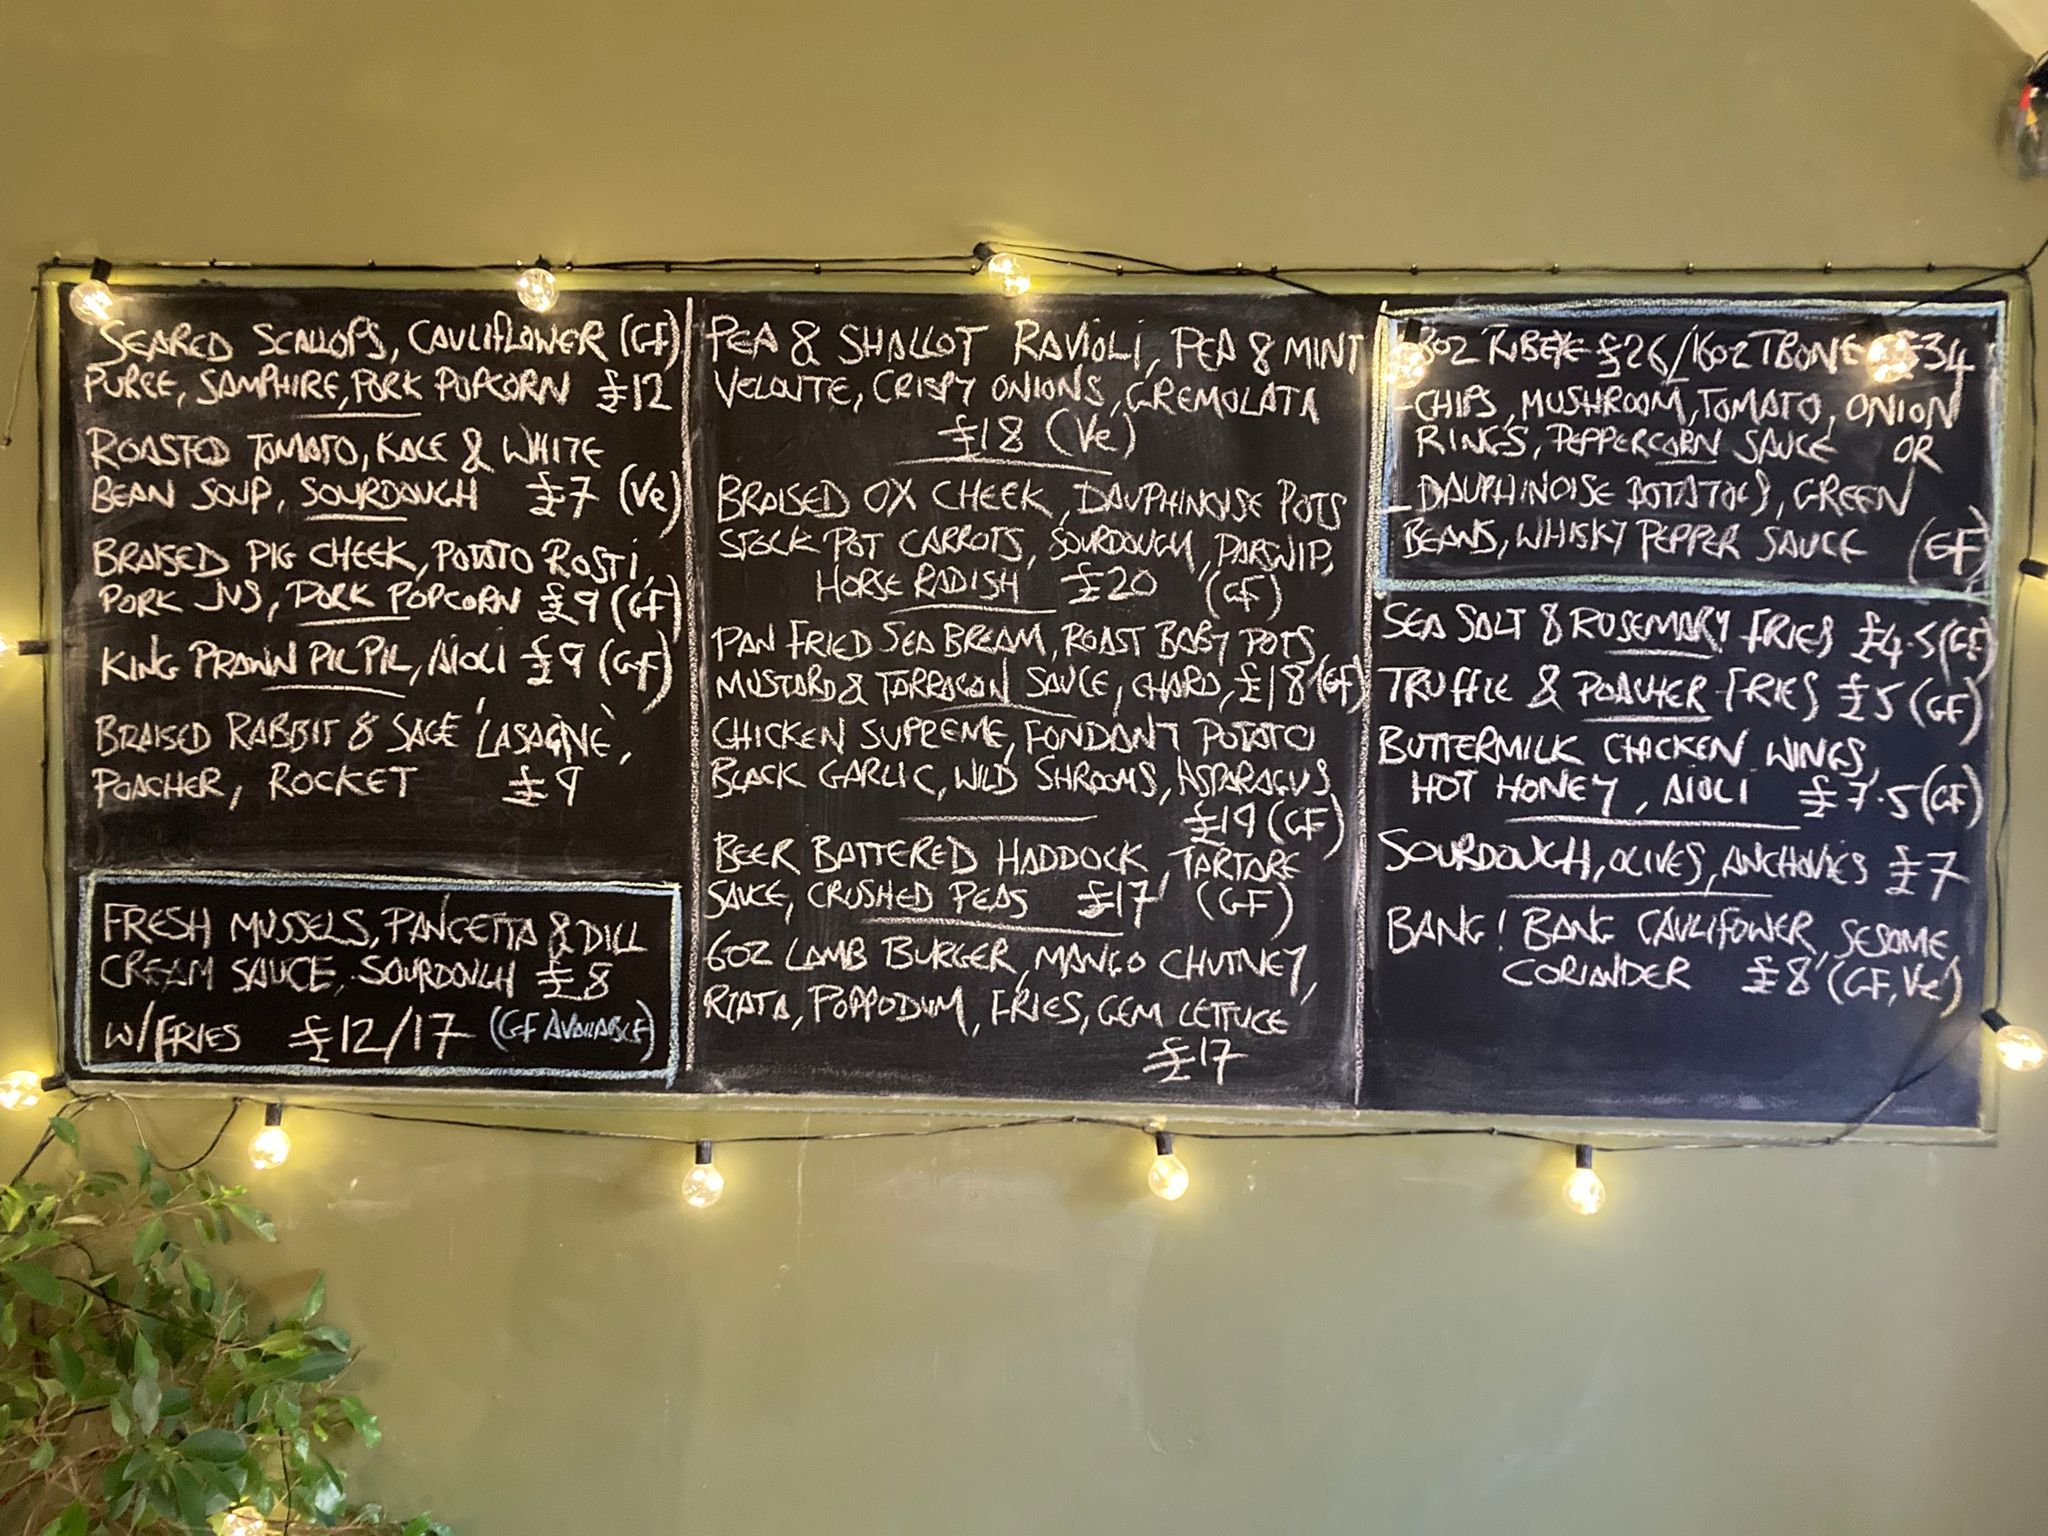 SEARED SCALLOPS, CAULIFLOWER (GF)
PUREE, SAMPHIRE, PORK POPCORN £12
ROASTED TOMATO, KALE & WHITE
BEAN SOUP, SOURDOUGH £7 (Ve)
BRAISED PIG CHEEK, POTATO ROSTI,
PORK JUS, PORK POPCORN £9 (GF)
KING PRAWN PIL PIL, AIOLI £9 (GF)
BRAISED RABBIT & SAGE 'LASAGNE',
POACHER, ROCKET £9
FRESH MUSSELS, PANCETTA & DILL
CREAM SAUCE, SOURDOUGH £8
W/FRIES £12/17 (GF AVAILABLE)
PEA & SHALLOT RAVIOLI, PEA & MINT
VELOUTE, CRISPY ONIONS, GREMOLATA
£18 (Ve)
BRAISED OX CHEEK, DAUPHINOISE POTS
STOCK POT CARROTS, SOURDOUGH, PARSNIP,
HORSERADISH £20 (GF)
PAN FRIED SEA BREAM, ROAST BABY POTS,
MUSTARD & TARRAGON SAUCE, CHARD, £18 (GF)
CHICKEN SUPREME, FONDANT POTATO
BLACK GARLIC, WILD SHROOMS, ASPARAGUS
£19 (GF)
BEER BATTERED HADDOCK, TARTARE
SAUCE, CRUSHED PEAS £17 (GF)
6OZ LAMB BURGER, MANGO CHUTNEY,
RIATA, POPPODUM, FRIES, GEM LETTUCE
£17
8OZ RIBEYE £26/16OZ TBONE £34
-CHIPS, MUSHROOM, TOMATO, ONION
RINGS, PEPPERCORN SAUCE OR
-DAUPHINOISE POTATOES, GREEN
BEANS, WHISKY PEPPER SAUCE (GF)
SEA SALT & ROSEMARY FRIES £4.5 (GF)
TRUFFLE & POACHER FRIES £5 (GF)
BUTTERMILK CHICKEN WINGS,
HOT HONEY, AIOLI £7.5 (GF)
SOURDOUGH, OLIVES, ANCHOVIES £7
BANG! BANG CAULIFLOWER, SESAME,
CORIANDER £8 (GF, Ve)